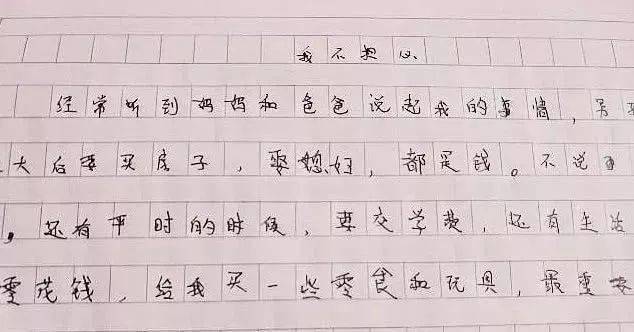 我不想
经常听到妈妈和爸爸说起我的事情,另
大后要买房子,娶媳妇,都是钱。不说
,还有平时的时候,要交学费,还有生活
零花钱,给我买一些零食和玩具,最重要